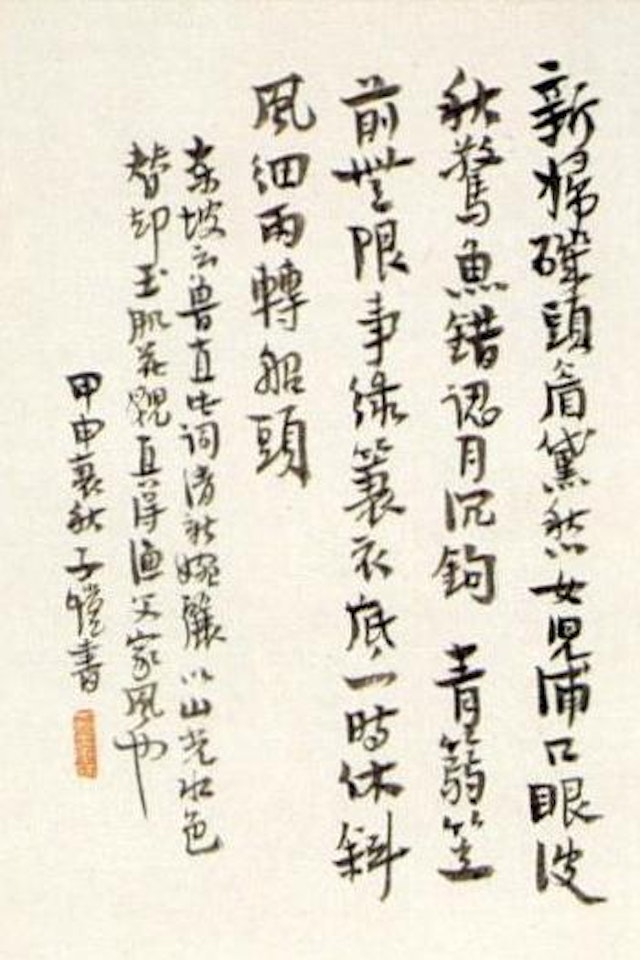 新婦磯頭眉黛愁女兒浦口眼波
秋驚魚錯認月沉鉤 青篛笠
前無限事綠簑衣底一時休斜
風細雨轉船頭
東坡云魯直此詞清新婉麗以山光水色
替却玉肌花貌真得漁父家風也
甲申秋子愷書